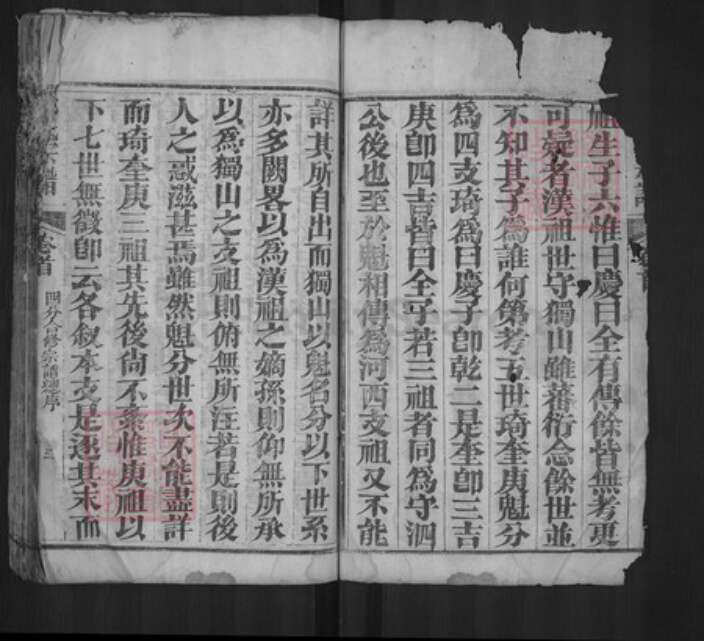 祖生子六惟曰慶曰全有傳餘皆無考更
可疑者漢祖世守獨山雖蕃衍念餘世並
不知其子為誰何第考五世琦奎庚魁分
為四支琦為曰慶子卽乾二是奎卽三吉
庚卽四吉皆曰全子若三祖者同為守泗
公後也至於魁相傳為河西支祖又不能
詳其所自出而獨山以魁名分以下世系
亦多闕畧以為漢祖之嫡孫則仰無所承
以為獨山之支祖則俯無所注若是則後
人之惑滋甚焉雖然魁分世次不能盡詳
而琦奎庚三祖其先後尙不紊惟庚祖以
下七世無徵卽云各叙本支是逐其末而
卷首
四分合修宗譜總序
三